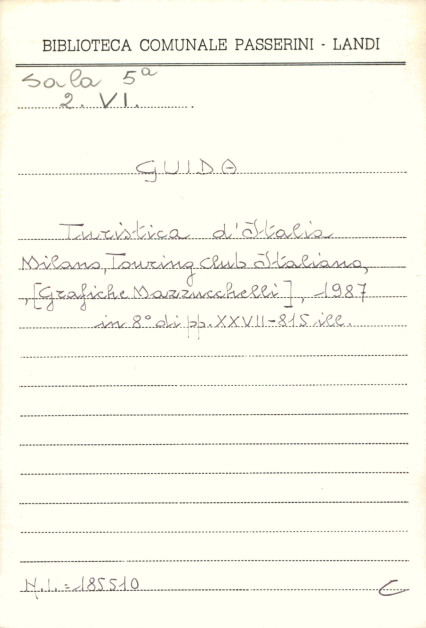 BIBLIOTECA COMUNALE PASSERINI - LANDI
Sala 5a
2. VI.
GUIDA
Turistica d'Italia
Milano, Touring Club Italiano,
, [Grafiche Mazzucchelli], 1987
in 8° di pp. XXVII-815 ill.
N.I. = 185510
C